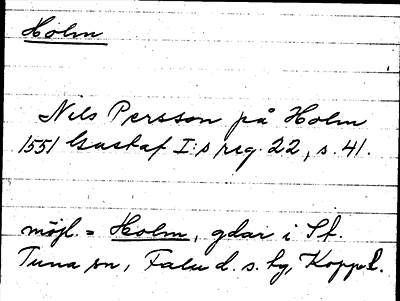 Holm
Nils Persson på Holm
1551 Gustaf I:s reg. 22, s. 41.
möjl. = Holm, gdar i St.
Tuna sn, Falu d. s. tg, Koppl.